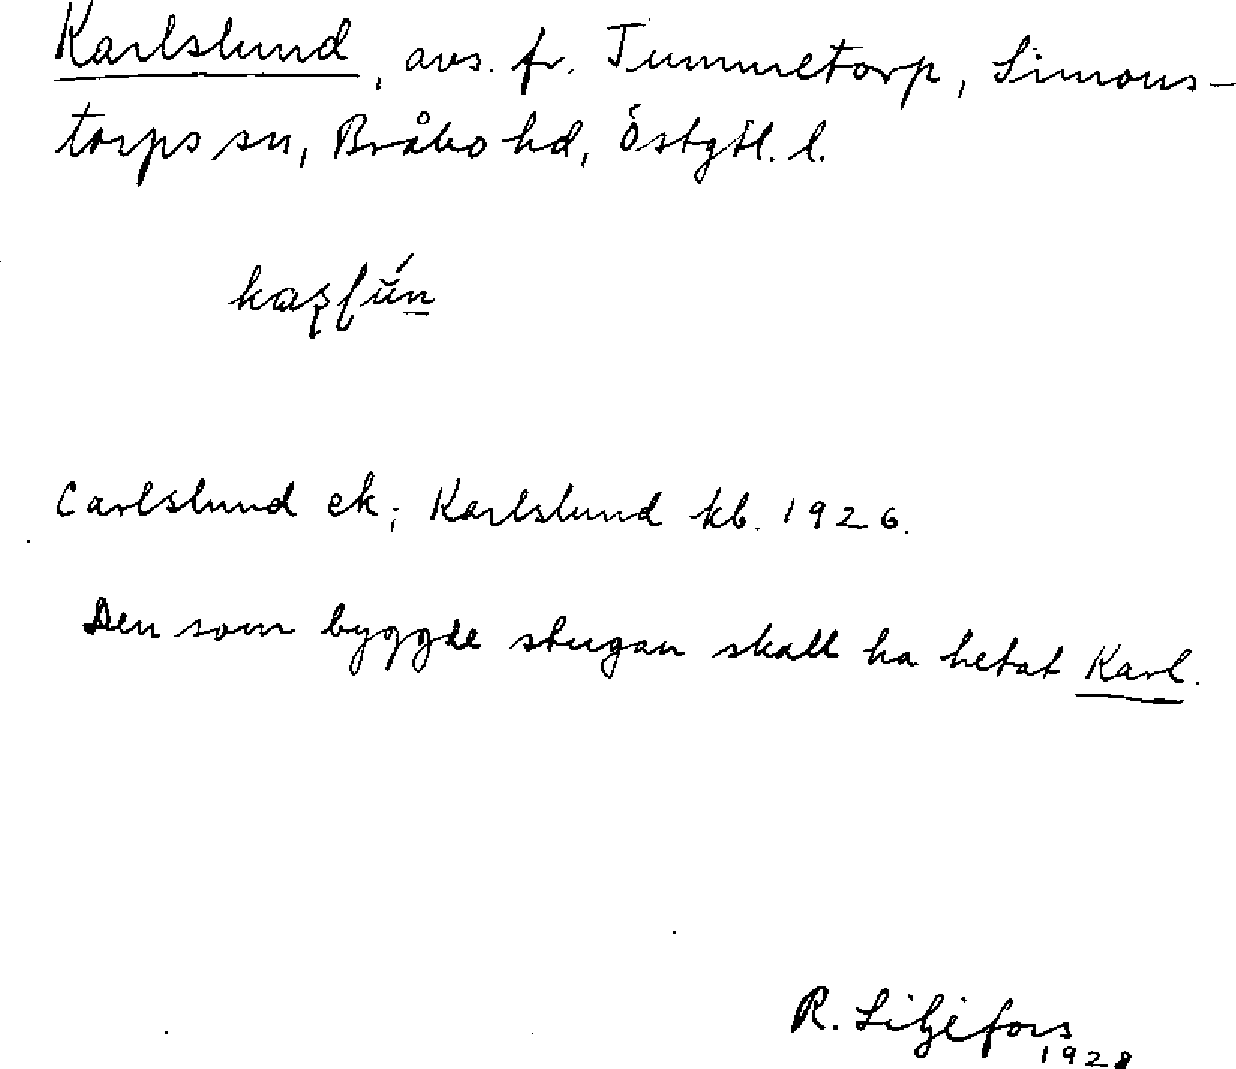 Karlslund, avs. fr. Tummetorp, Simons-
torps sn, Bråbo hd, Östgötl. l.
Carlslund ek; Karlslund kb. 1926.
Den som byggde stugan skall ha hetat Karl.
R. Liljefors
1928